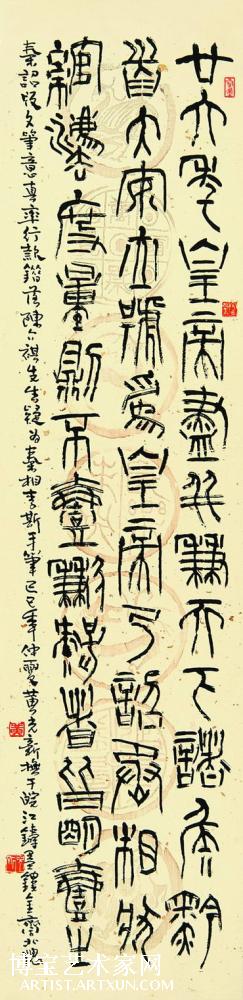 廿六年皇帝盡并兼天下諸侯黔
首大安立號為皇帝乃詔丞相狀
綰灋度量則不壹歉疑者皆明壹之
秦詔版文筆意真率行款錯落陳介祺先生嘗疑為秦相李斯手筆己巳年仲夏黃克新撫于皖江鑄
博宝艺术家网
ARTIST.ARTXUN.COM